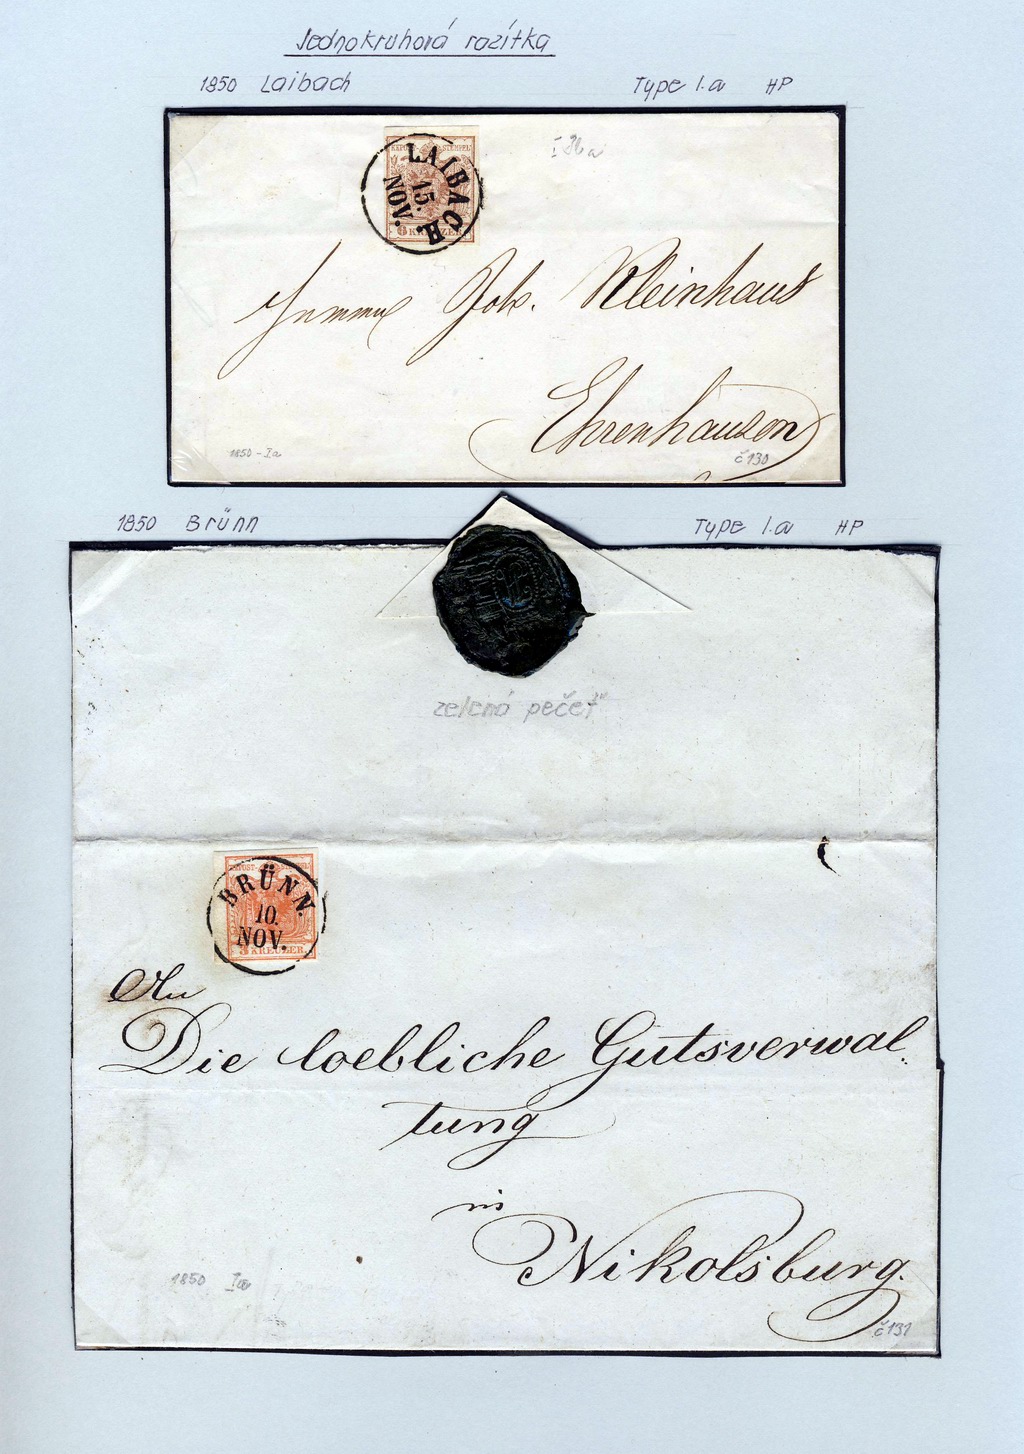 Jednokruhová razítka
1850 Laibach Type I.a HP
K.K.POST-STEMPEL
6 KREUZER
LAIBACH.
15.
NOV.
Joh. Kleinhaus
Ehrenhausen
1850 - Ia
č 130
1850 Brünn Type I.a HP
zelená pečeť
BRÜNN.
10.
NOV.
3 KREUZER
An
Die loebliche Gutsverwal-
tung
in
Nikolsburg.
1850 Ia
č 131